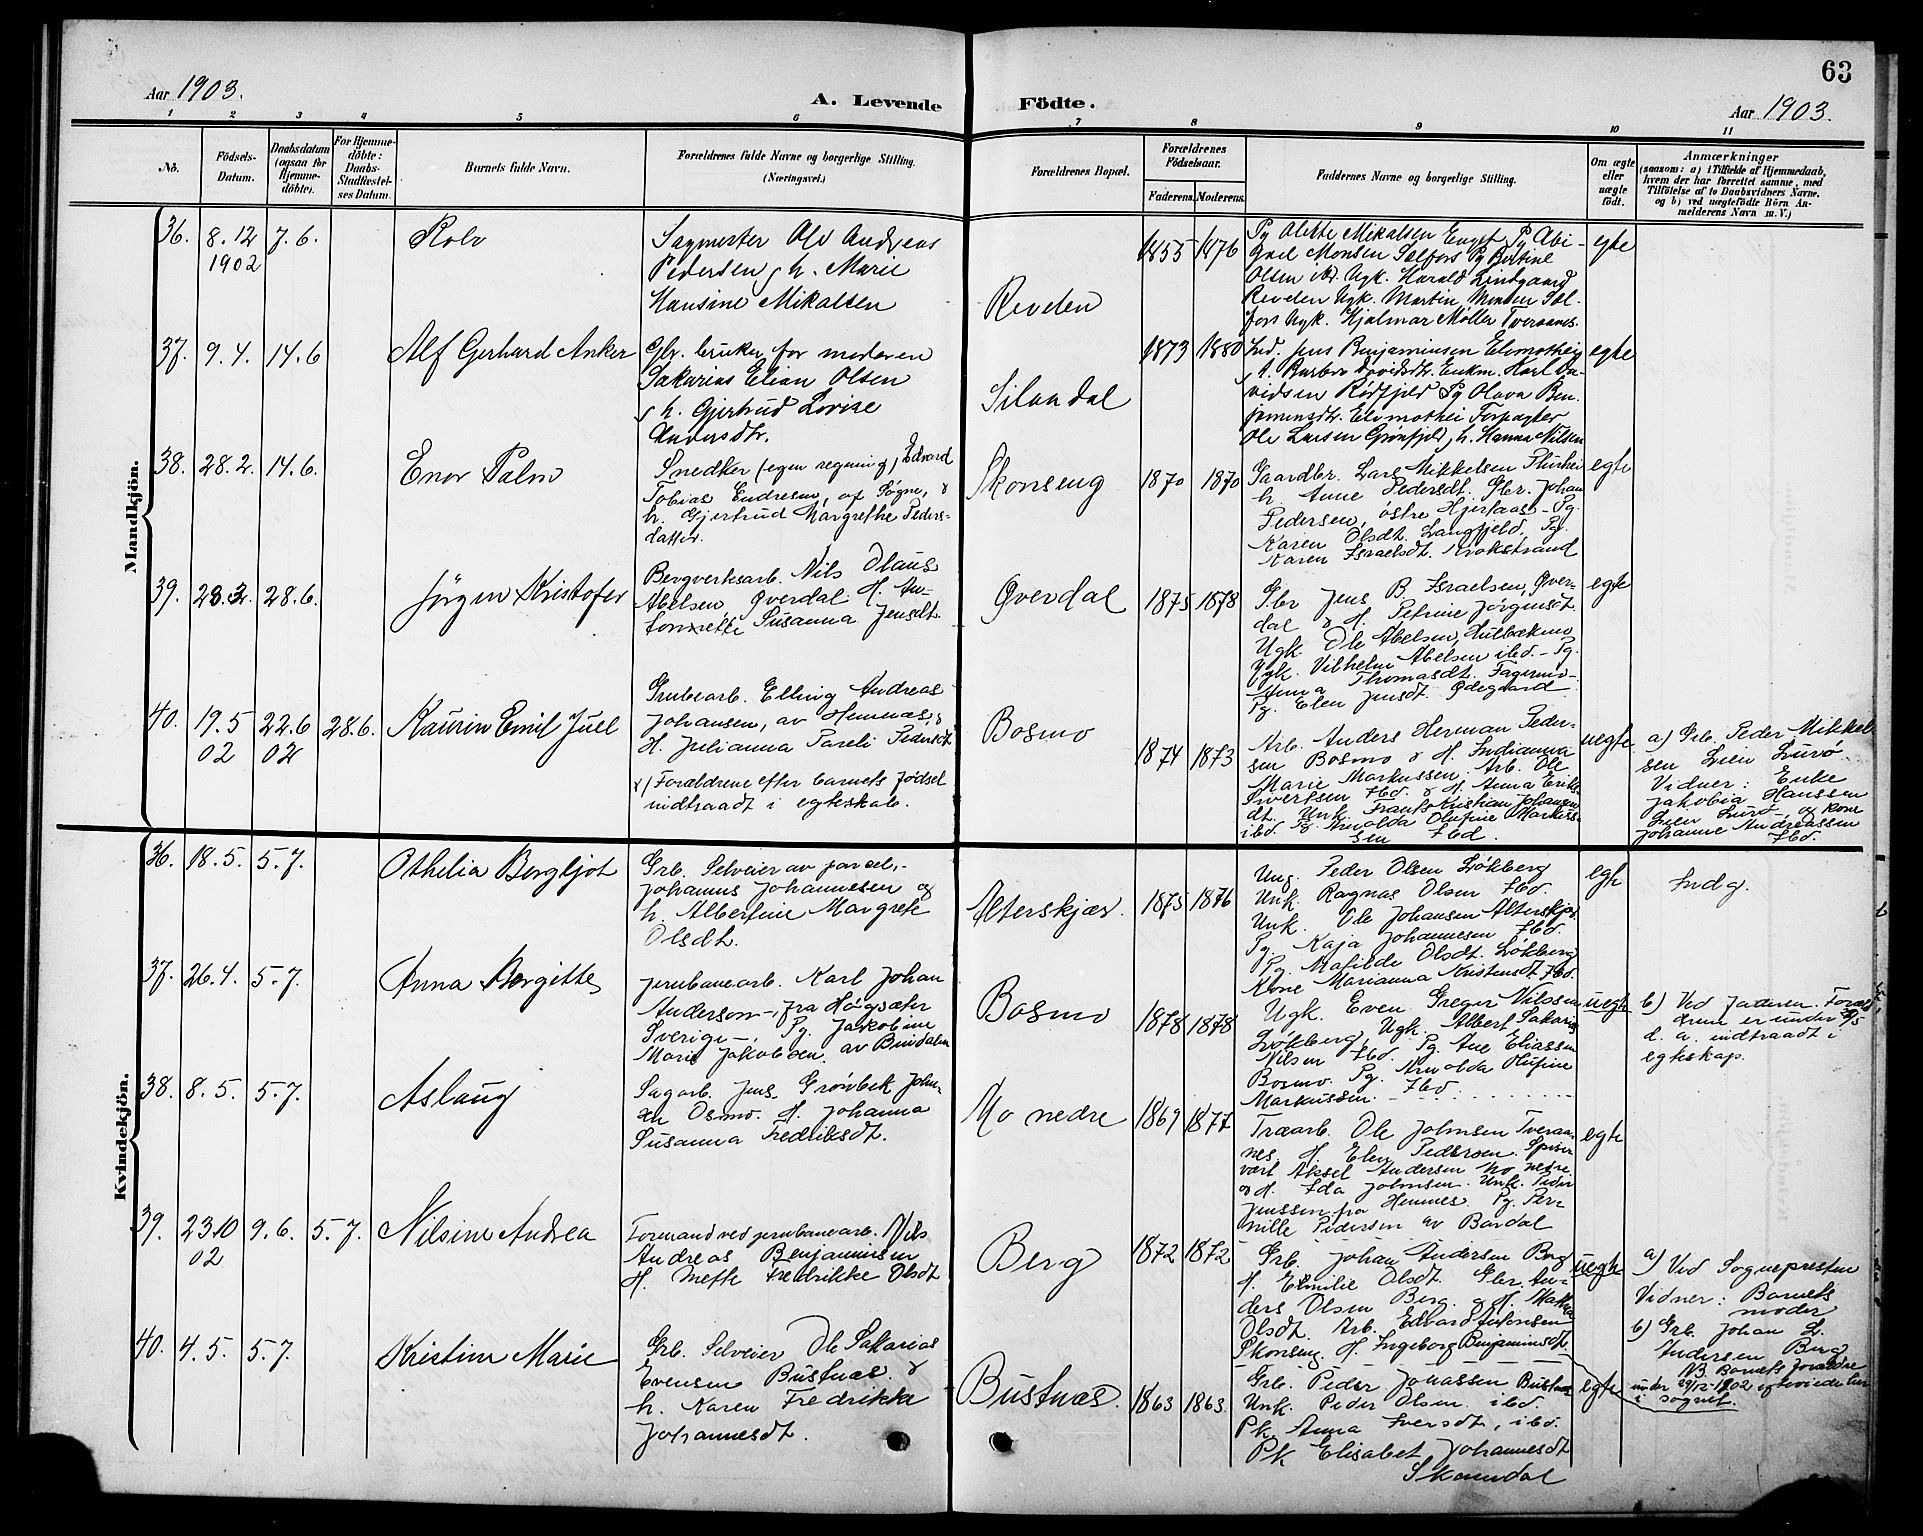 63
Aar 1903.
A. Levende Födte.
Aar 1903.
1 2 3 4 5 6 7 8 9 10 11
No.
Födsels-
Datum.
Daabsdatum
(ogsaa for
Hjemme-
döbte).
For Hjemme-
döbte:
Daabs-
Stadfæstel-
ses Datum.
Barnets fulde Navn.
Forældrenes fulde Navne og borgerlige Stilling.
(Næringsvei.)
Forældrenes Bopæl.
Forældrenes
Födselsaar.
Faderens. Moderens.
Faddernes Navne og borgerlige Stilling.
Om ægte
eller
uægte
födt.
Anmærkninger
(saasom: a) i Tilfælde af Hjemmedaab,
hvem der har forrettet samme, med
Tilföielse af to Daabsvidners Navne.
og b) ved uægtefödte Börn An-
melderens Navn m. V.)
Mandkjön.
36. 8.12 7.6.
1902
Rolv
Sagmester Ole Andreas
Pedersen, h. Marie
Hansine Mikalsen
Revden
1855 1876
Pg Olette Mikalsen Pg. Abi-
gael Monsen Selfors Pg Bertine
Olsen ibd. Ugk. Harald Lindgaard
Revden Ugk. Martin Monsen Sel-
fors Ugk. Hjalmar Møller Tveraanes.
egte
37. 9.4. 14.6
Alf Gerhard Anker
Gbr. bruker for moderen
Sakarias Elian Olsen
h. Gjertrud Lovise
Andersdtr.
Silaadal
1873 1880
Ind. Jens Benjaminsen
Davidsdtr. Enkm. Karl Da-
vidsen Rödfjeld Pg Olava Ben-
jaminsdtr. Forpagter
Ole Larsen Grønfjeld, h. Hanna Nilsen
egte
38. 28.2. 14.6.
Enor Palm
Snedker (egen regning) Edvard
Tobias Endresen, af Sogne, &
h. Gjertrud Margrethe Peders-
datter.
Skonseng
1870 1870
Gaardbr. Lars Mikkelsen
h. Anne Pedersdt. Gbr. Johan
Pedersen, östre Hjertaas - Pg.
Karen Olsdt. Langfjeld. Pg.
Karen Israelsdt. Krokstrand
egte
39. 28.3. 28.6.
Jörgen Kristofer
Bergverksarb. Nils Olaus
Abelsen, Øverdal H. An-
tonette Susanna Jensdt.
Øverdal
1875 1878
Gbr Jens B Israelsen, Øver-
dal & H. Petrine Jörgensdt.
Ugk. Ole Abelsen, Hulbækmo
Ygk. Vilhelm Abelsen ibd. - Pg.
Anna Thomasdt. Fagermo -
Pg. Elen Jensdt Ødegaard
egte
40. 19.5 22.6 28.6.
02 02
Kaurin Emil Juel
Grubearb. Elling Andreas
Johansen, av Hemnes, &
H. Julianna Pareli Pedersdt.
x) Forældrene efter barnets födsel
indtraadt i egteskab.
Bosmo
1874 1873
Arb. Anders Herman Peder-
sen Bosmo & H. Indianna
Marie Markussen. Arb. Ole
Sivertsen Ibd. & H. Anna Eriks-
dt. Unk. Frants Kristian Johansen
ibd. Pg. Arnolda Olufine Markus-
sen Ibd.
uegte
a) Grb. Peder Mikkel-
sen Lien Lurö.
Vidner: Enke
Jakobia Hanssen
Lien Lurö, og kone
Johanne Andreassen
Ibd.
Kvindekjön.
36. 18.5. 5.7.
Othelia Bergljot
Grb. Selveier av parsel,
Johannes Johannesen og
h. Albertine Margrete
Olsdt.
Alterskjær.
1875 1876
Ung. Peder Olsen Lökberg
Unk. Ragnas Olsen Ibd.
Unk. Ole Johansen Alterskjær
Pg. Kaja Johannesen Ibd.
Pg. Matilde Olsdt. Lökberg
Kone Marianna Kristensdt. Ibd.
egte
Indg.
37. 26.4. 5.7.
Anna Bergitte
Jernbanearb. Karl Johan
Anderson -, fra Högsæter
Sverige -, Pg. Jakobine
Marie Jakobsen. av Bindalen
Bosmo
1878 1878
Ugk. Even Greger Nilssen
Lökberg, Ugk. Albert Sakarias
Nilsen Ibd. Pg. Ane Eliassen
Bosmo. Pg. Arnolda Olufine
Markussen. Ibd.
uegte
b) Ved faderen. Foræl-
drene er under 29/5
d. a. indtraadt i
egteskap.
38. 8.5. 5.7.
Aslaug
Sagarb. Jens Grönbek John-
sen Osmo. H. Johanna
Susanna Fredriksdt.
Mo nedre
1869 1877
Træarb. Ole Johnsen Tveraa-
nes, H. Elen Pedersen. Spiser-
vert Aksel Andersen Mo nedre.
& H. Ida Johnsen. Unk. Peder
Jenssen fra Hemnes. Pg. Per-
nille Pedersen av Bardal
egte
39. 23.10 9.6. 5.7.
02
Nilsine Andrea
Formand ved jernbanearb. Nils
Andreas Benjaminsen
H. Mette Fredrikke Olsdt
Berg
1872 1872
Grb. Johan Andersen Berg
H. Emilie Olsdt. Gbr. An-
ders Olsen Berg. og H. Mathea
Olsdt. Arb. Edvard Antonsen
Skonseng. H. Ingeborg Benjaminsdt.
uegte
a) Ved Sognepresten
Vidner: Barnets
moder
b) Grb. Johan L.
Andersen Berg
NB. Barnets forældre
under 29/12-1902 egteviede her
i sognet.
40. 4.5. 5.7.
Kristine Marie
Grb. Selveier Ole Sakarias
Evensen Bustnes. &
h. Karen Fredrikke
Johannesdt.
Bustnæs.
1863 1863.
Grb. Peder Johassen Bustnæs
Unk. Peder Olsen. ibd.
Pk. Anna Iversdt, ibd.
Pk Elisabet Johannesdt
Skamdal
egte